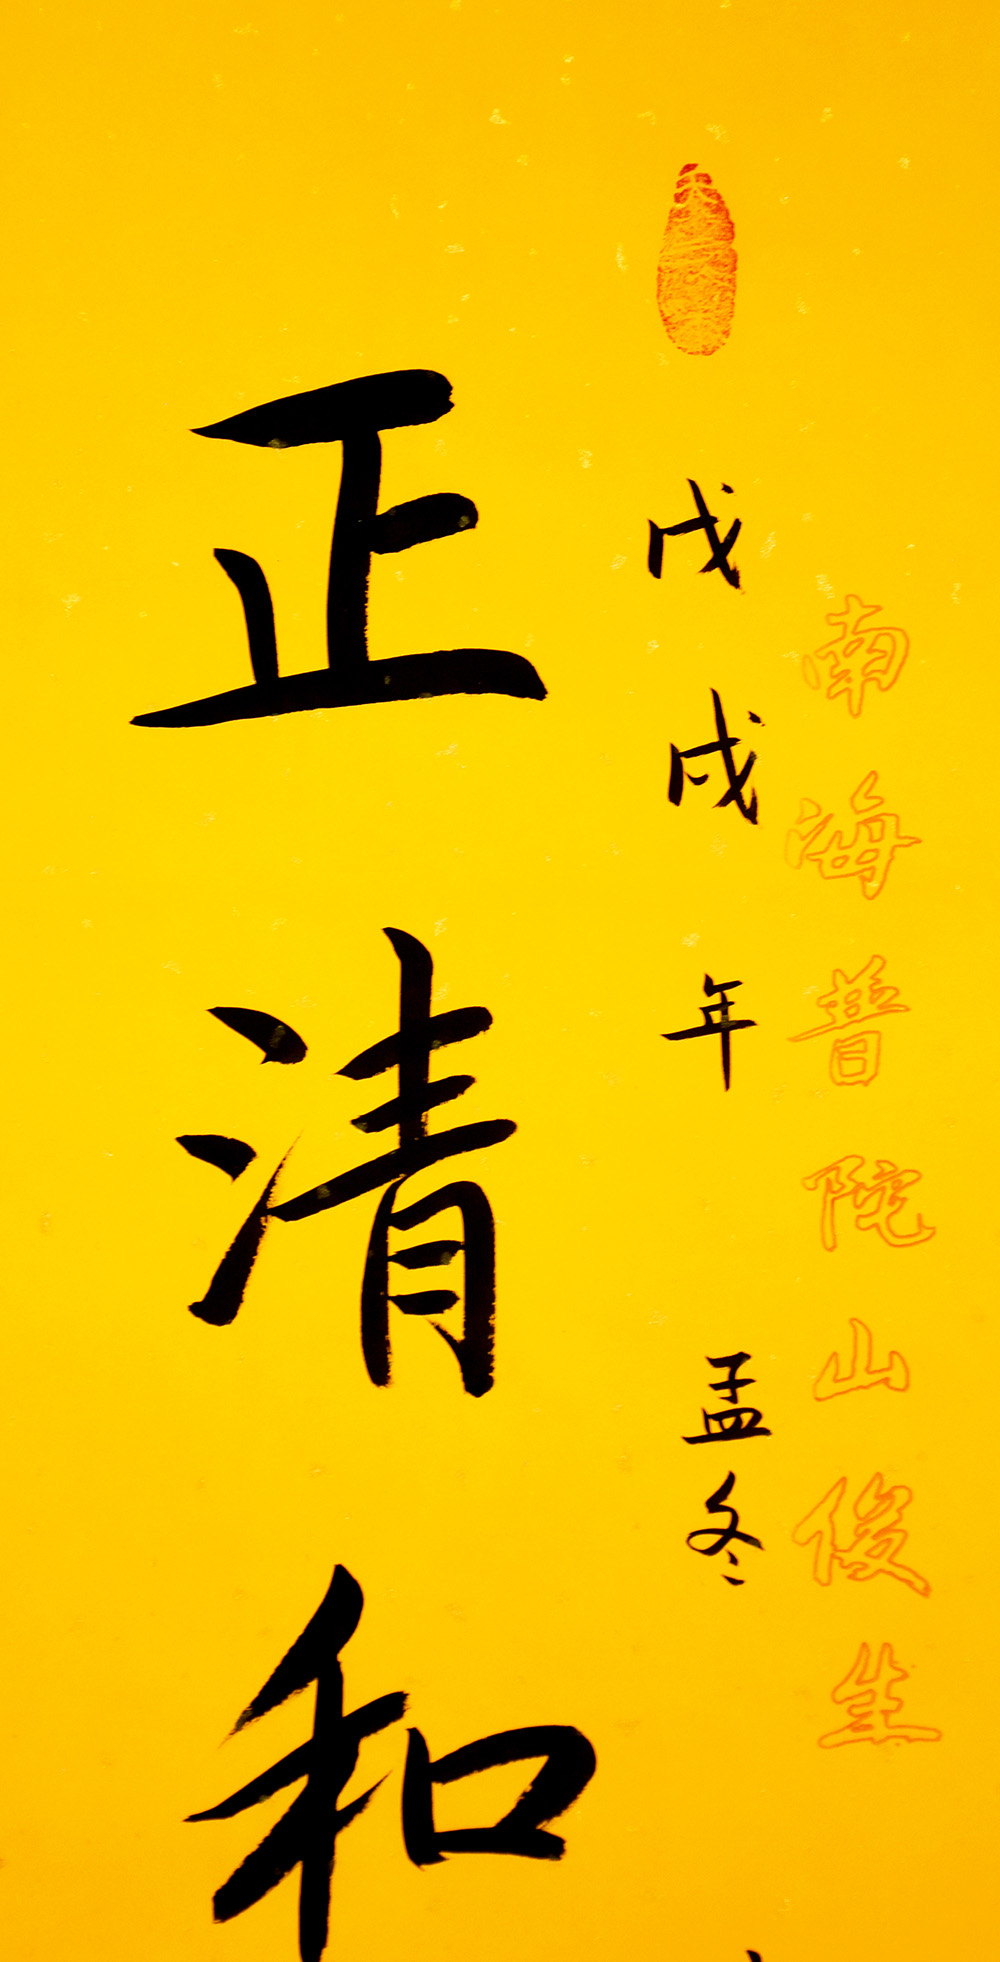 南海普陀山俊生
戊戌年 孟冬
正清和